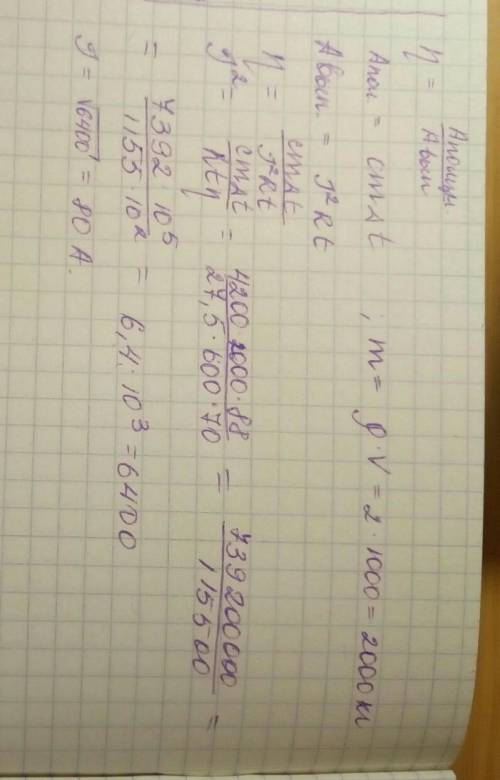 η = Aполезн / Aвып
Aпол = cmΔt ; m = ρ·V = 2·1000 = 2000 кг
Aвып = J²Rt
η = cmΔt / J²Rt
J² = cmΔt / Rtη = 4200·2000·88 / 27,5·600·70 = 739200000 / 115500 =
= 7392·10⁵ / 1155·10² = 6,4·10³ = 6400
J = √6400 = 80 A.